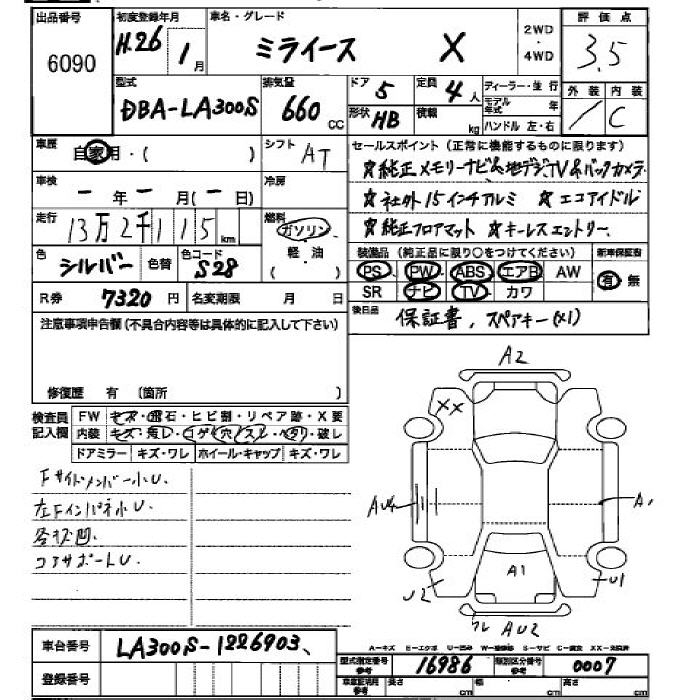 出品番号 初度登録年月 車名・グレード 2WD・4WD 評価点
6090 H.26 1月 ミライース X 3.5
型式 排気量 ドア 5 定員 4人 ディーラー・並行 外装 内装
DBA-LA300S 660cc 形状 HB 積載 kg モデル年式 年 ハンドル 左・右 / C
車歴 自家用・( ) シフト AT セールスポイント (正常に機能するものに限ります)
☆純正メモリーナビ&地デジTV&バックカメラ
車検 - 年 - 月(- 日) 冷房 ☆社外15インチアルミ ☆エコアイドル
走行 13万2千115km 燃料 ガソリン・軽・油 ( ) ☆純正フロアマット ☆キーレスエントリー
色 シルバー 色替 色コード S28 装備品 (純正品に限り○をつけてください) 新車保証書
PS PW ABS エアB AW 有・無
R券 7320円 名変期限 月 日 SR ナビ TV カワ
注意事項申告欄 (不具合内容等は具体的に記入して下さい) 後日品 保証書、スペアキー(×1)
修復歴 有 (箇所 )
検査員記入欄 FW キズ・飛石・ヒビ割・リペア跡・X要
内装 キズ・無し・コゲ・穴・スレ・ヘタリ・破レ
ドアミラー キズ・ワレ ホイール・キャップ キズ・ワレ
Fサイドメンバー小U.
左Fインパネ小U.
各キズ凹.
コアサポートU.
A2
XX
AU4
A1
A1
U2
U1
AU2
A-キズ E-エクボ U-凹み W-補修跡 S-サビ C-腐食 XX-交換済
車台番号 LA300S-1226903
登録番号 型式指定番号 参考 16986 類別区分番号 参考 0007
車庫証明用 参考 長さ cm 幅 cm 高さ cm